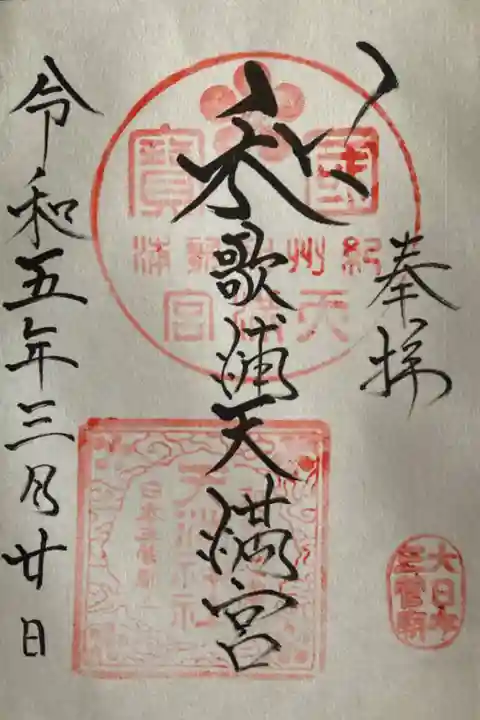 奉拝
和歌浦天満宮
令和五年三月廿日
國寶
紀州和歌浦
天満宮
天満神社
大日本
三菅廟